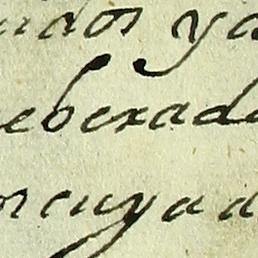 ados ya
eberada
oreuyad